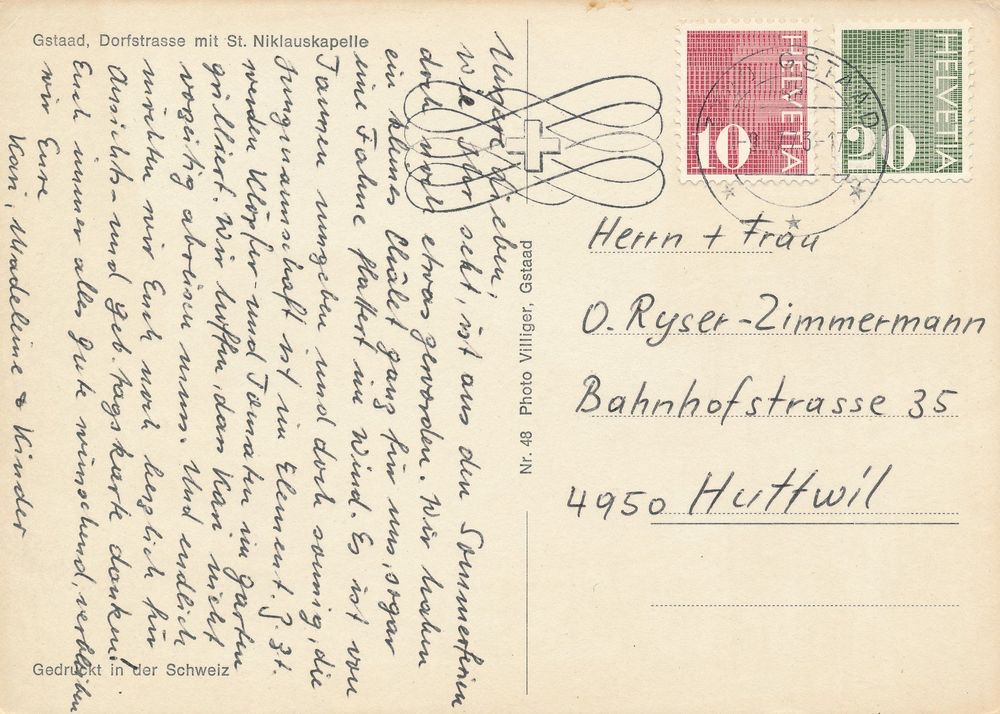 Gstaad, Dorfstrasse mit St. Niklauskapelle
Unsere Lieben,
Wie Ihr seht, ist aus den Sommerferien
doch noch etwas geworden. Wir haben
ein kleines Châlet ganz für uns, sogar
eine Fahne flattert im Wind. Es ist von
Tannen umgeben und doch sonnig, die
Jungmannschaft ist im Element. Z. Zt.
werden Klöpfer und Tomaten im Garten
grilliert. Wir hoffen, dass Kari nicht
vorzeitig abreisen muss. Und endlich
möchten wir Euch noch herzlich für
Ansichts- und Geb. tagskarte danken!
Euch immer alles Gute wünschend, verbleiben
wir Eure
Kari, Madeleine & Kinder
Gedruckt in der Schweiz
Nr. 48 Photo Villiger, Gstaad
HELVETIA
10
HELVETIA
20
GSTAAD
Herrn + Frau
O. Ryser-Zimmermann
Bahnhofstrasse 35
4950 Huttwil